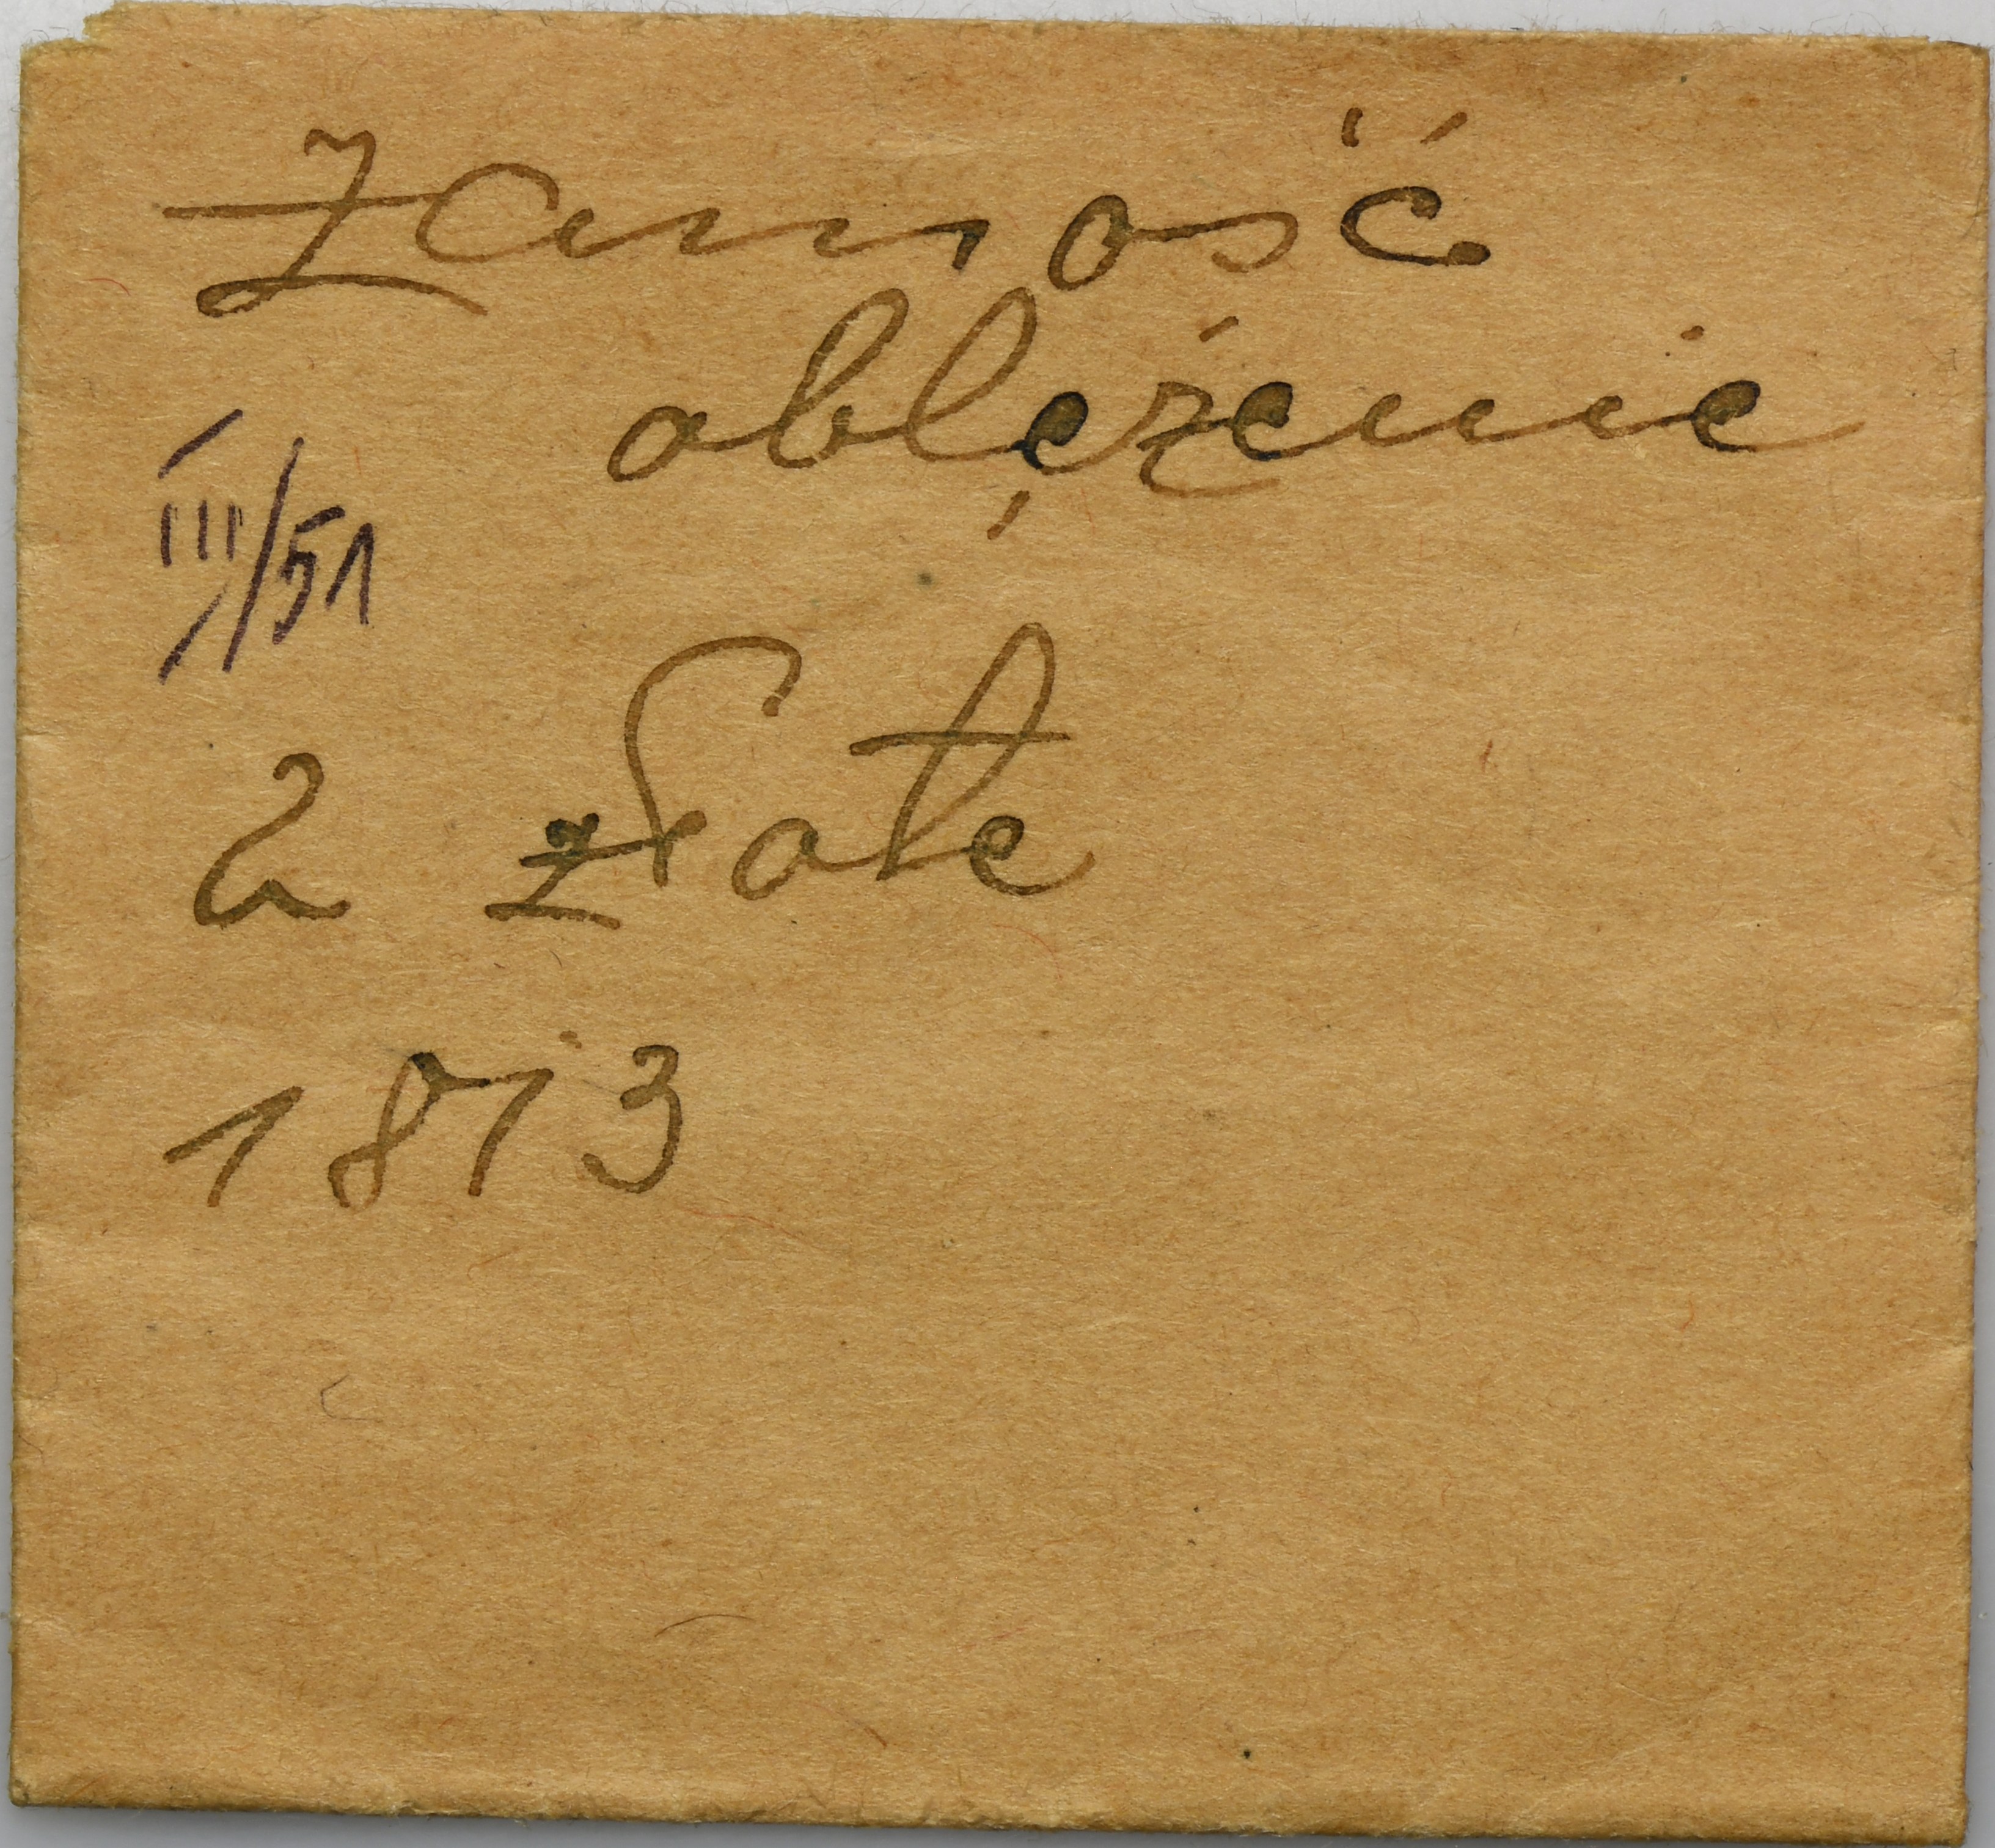 Zamość
oblężenie
III/51
2 złote
1813